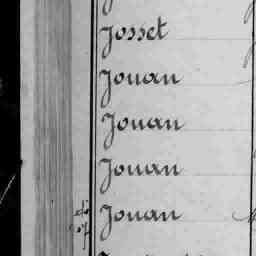 Josset
Jouan
Jouan
Jouan
Jouan